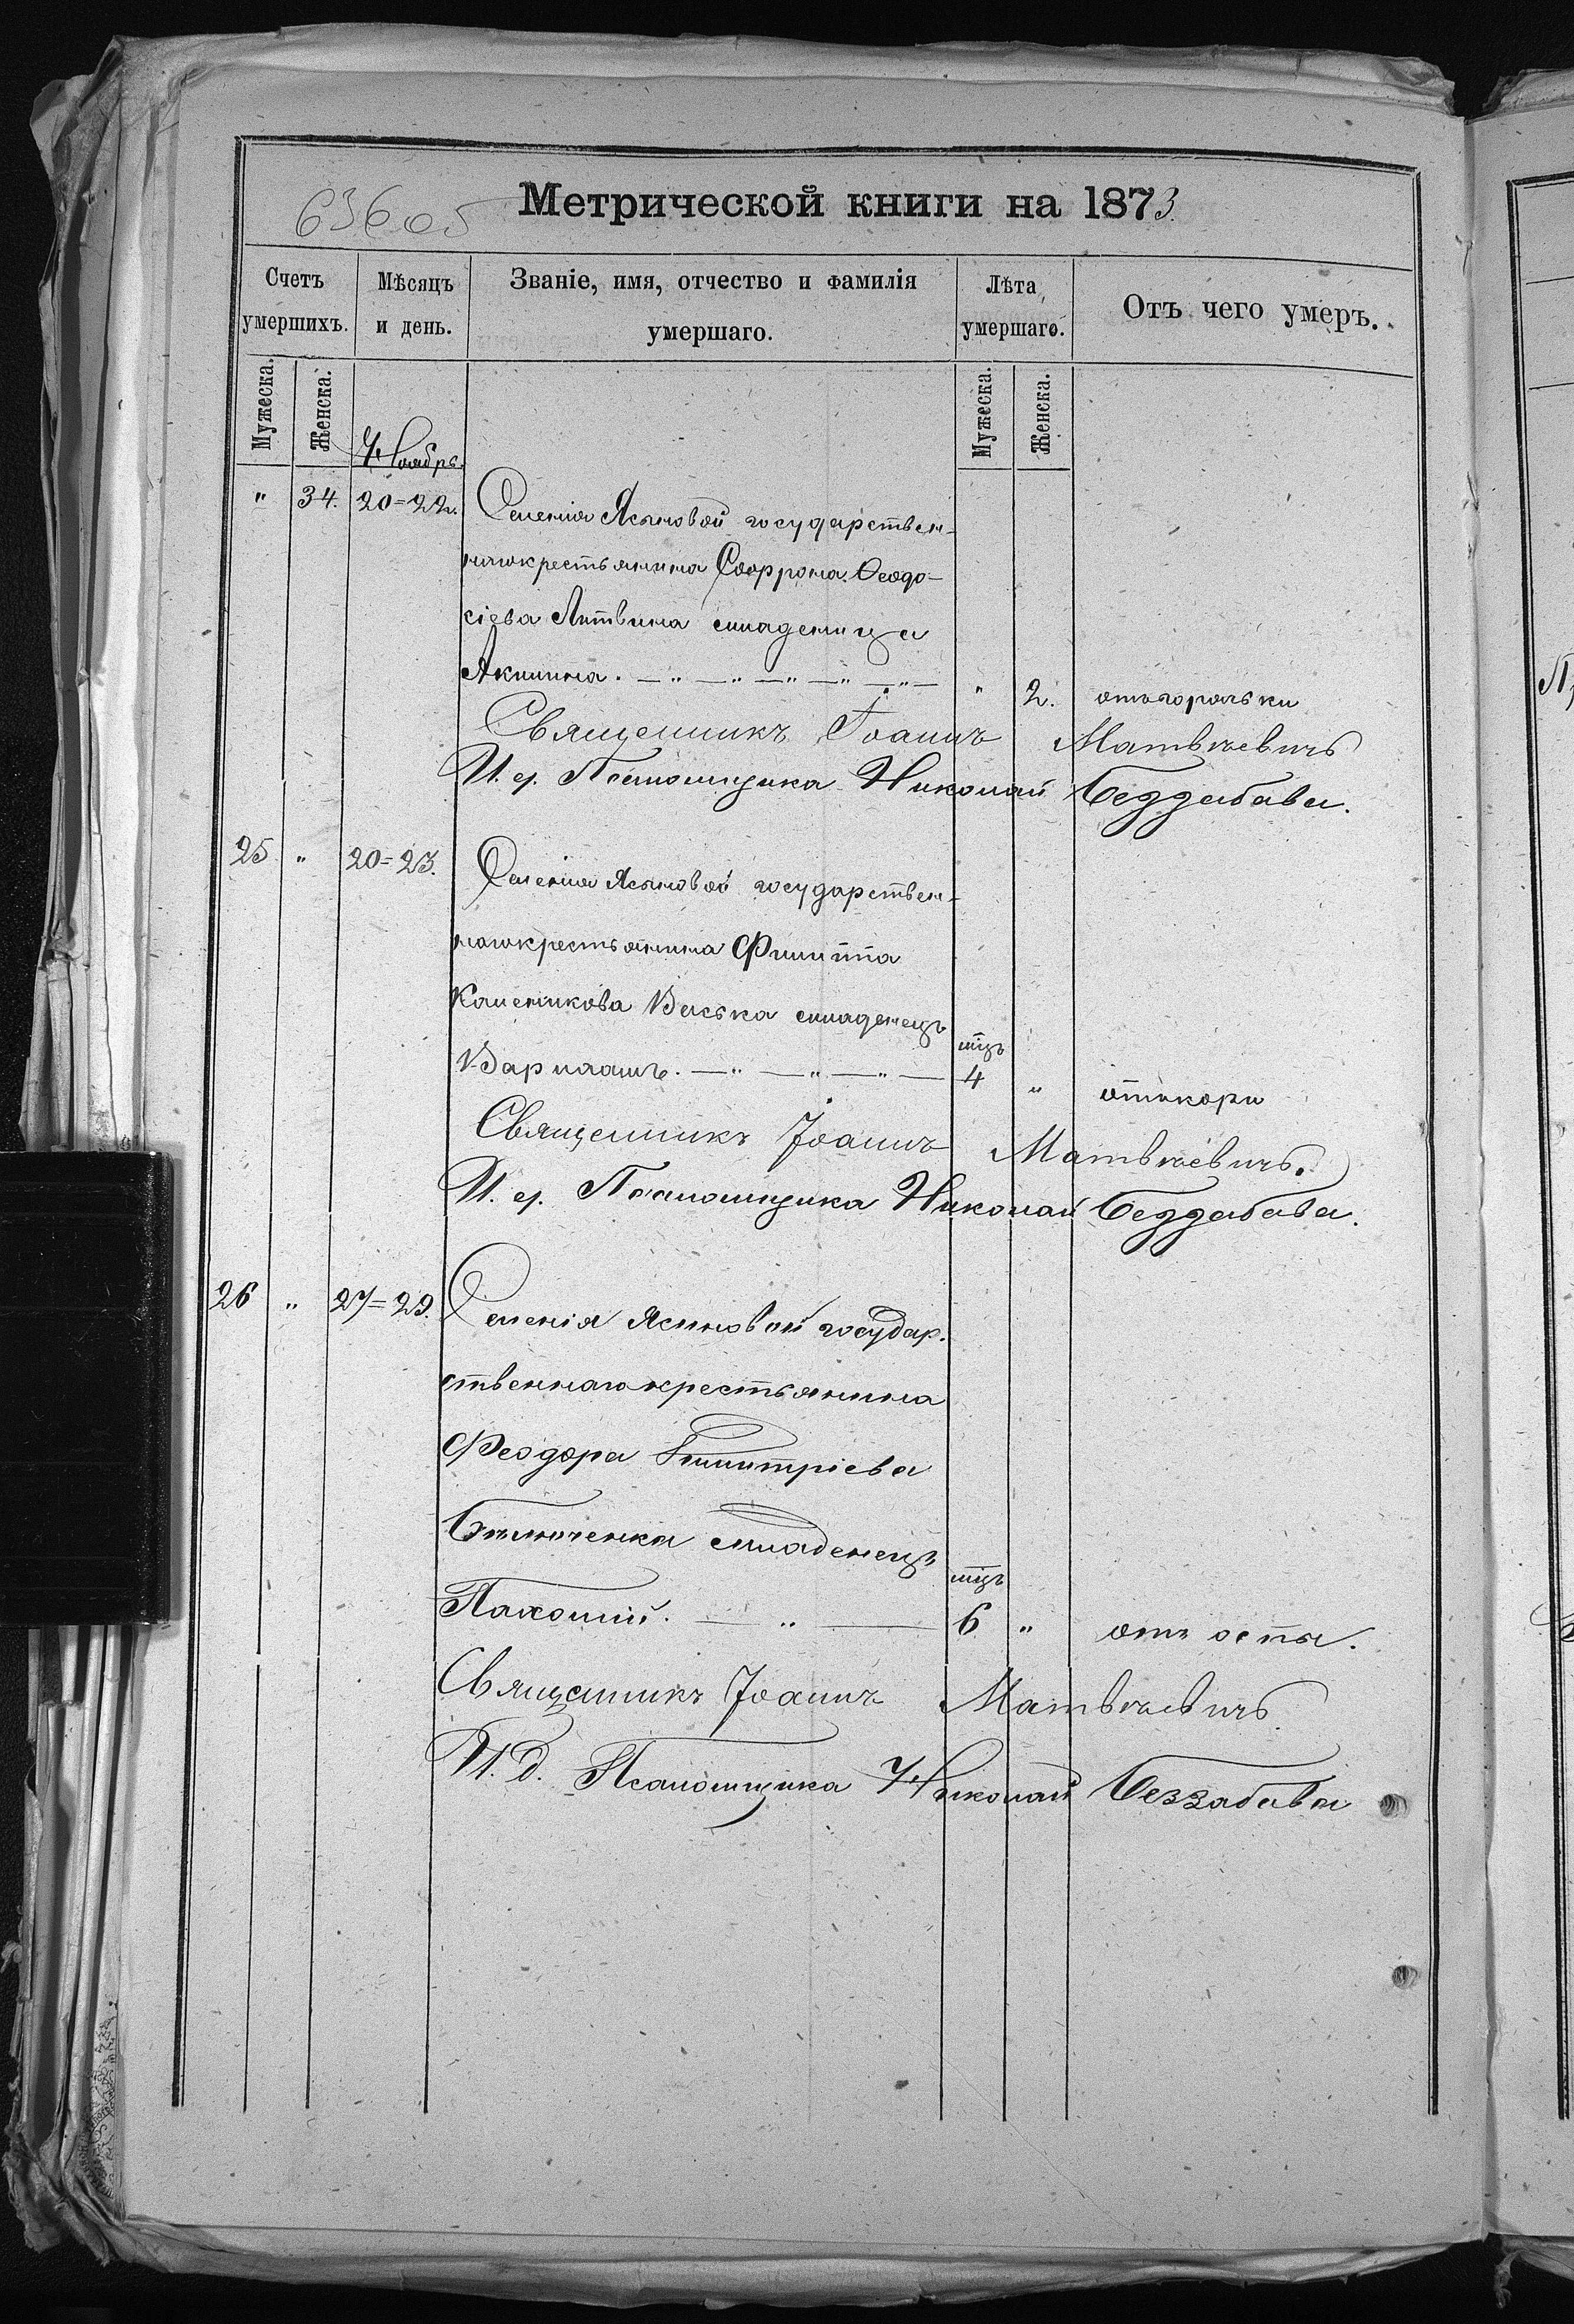 63605
Метрической книги на 1873.
Счетъ умершихъ.
Мѣсяцъ и день.
Званіе, имя, отчество и фамилія умершаго.
Лѣта умершаго.
Отъ чего умеръ.
Мужеска.
Женска.
Ноябрь.
Мужеска.
Женска.
" 34. 20=22. Селенія Ясиновой государствен-
наго крестьянина Софрона Ѳеодо-
сіева Литвина младеница
Акилина. " 2. отъ горячки
Священникъ Іоаннъ Матвѣевичъ
И. д. Псаломщика Николай Беззабава.
25 " 20=23. Селенія Ясиновой государствен-
наго крестьянина Филиппа
Каленикова Васька младенецъ
Варлаамъ. мцъ 4 " отъ кори
Священникъ Іоаннъ Матвѣевичъ.
И. д. Псаломщика Николай Беззабава.
26 " 27=29. Селенія Ясиновой государ-
ственнаго крестьянина
Феодора Димитріева
младенецъ
Пахомій. " мцъ 6 " отъ оспы.
Священникъ Іоаннъ Матвѣевичъ
И. д. Псаломщика Николай Беззабава